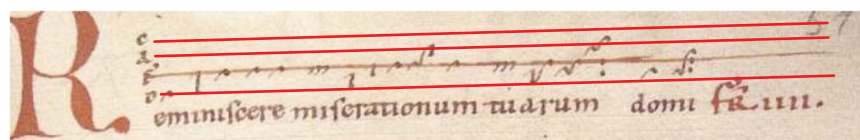 Reminiscere miserationum tuarum domi fr iiii.